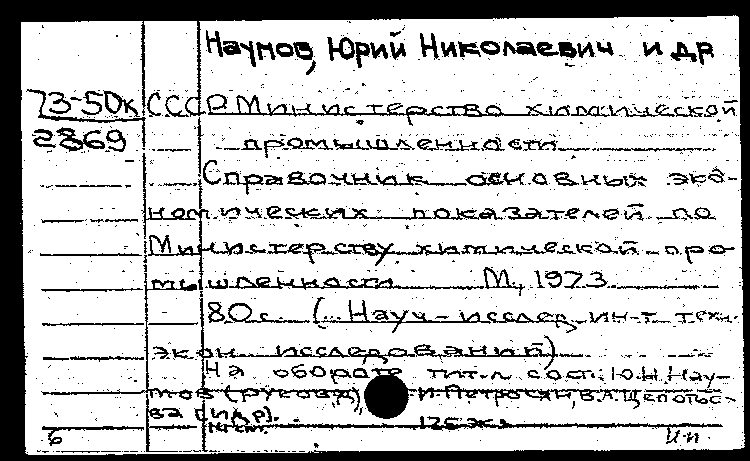 Наумов, Юрий Николаевич и др
73-50к СССР. Министерство химической
2869 промышленности
Справочник основных эко-
номических показателей по
Министерству химической про-
мышленности М., 1973
80 с. (.. Науч-исслед. ин-т техн.
экон. исследований)
На обороте тит. л. сост.: Ю.Н. Нау-
мов (руковод), И. Петросян, В.А.
ва [и др].
6 125 экз И.п.